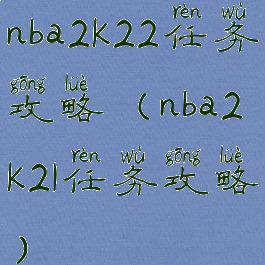 rèn wù
nba2k22任务
gōng lüè
攻略（nba2
rèn wù gōng lüè
k21任务攻略
）